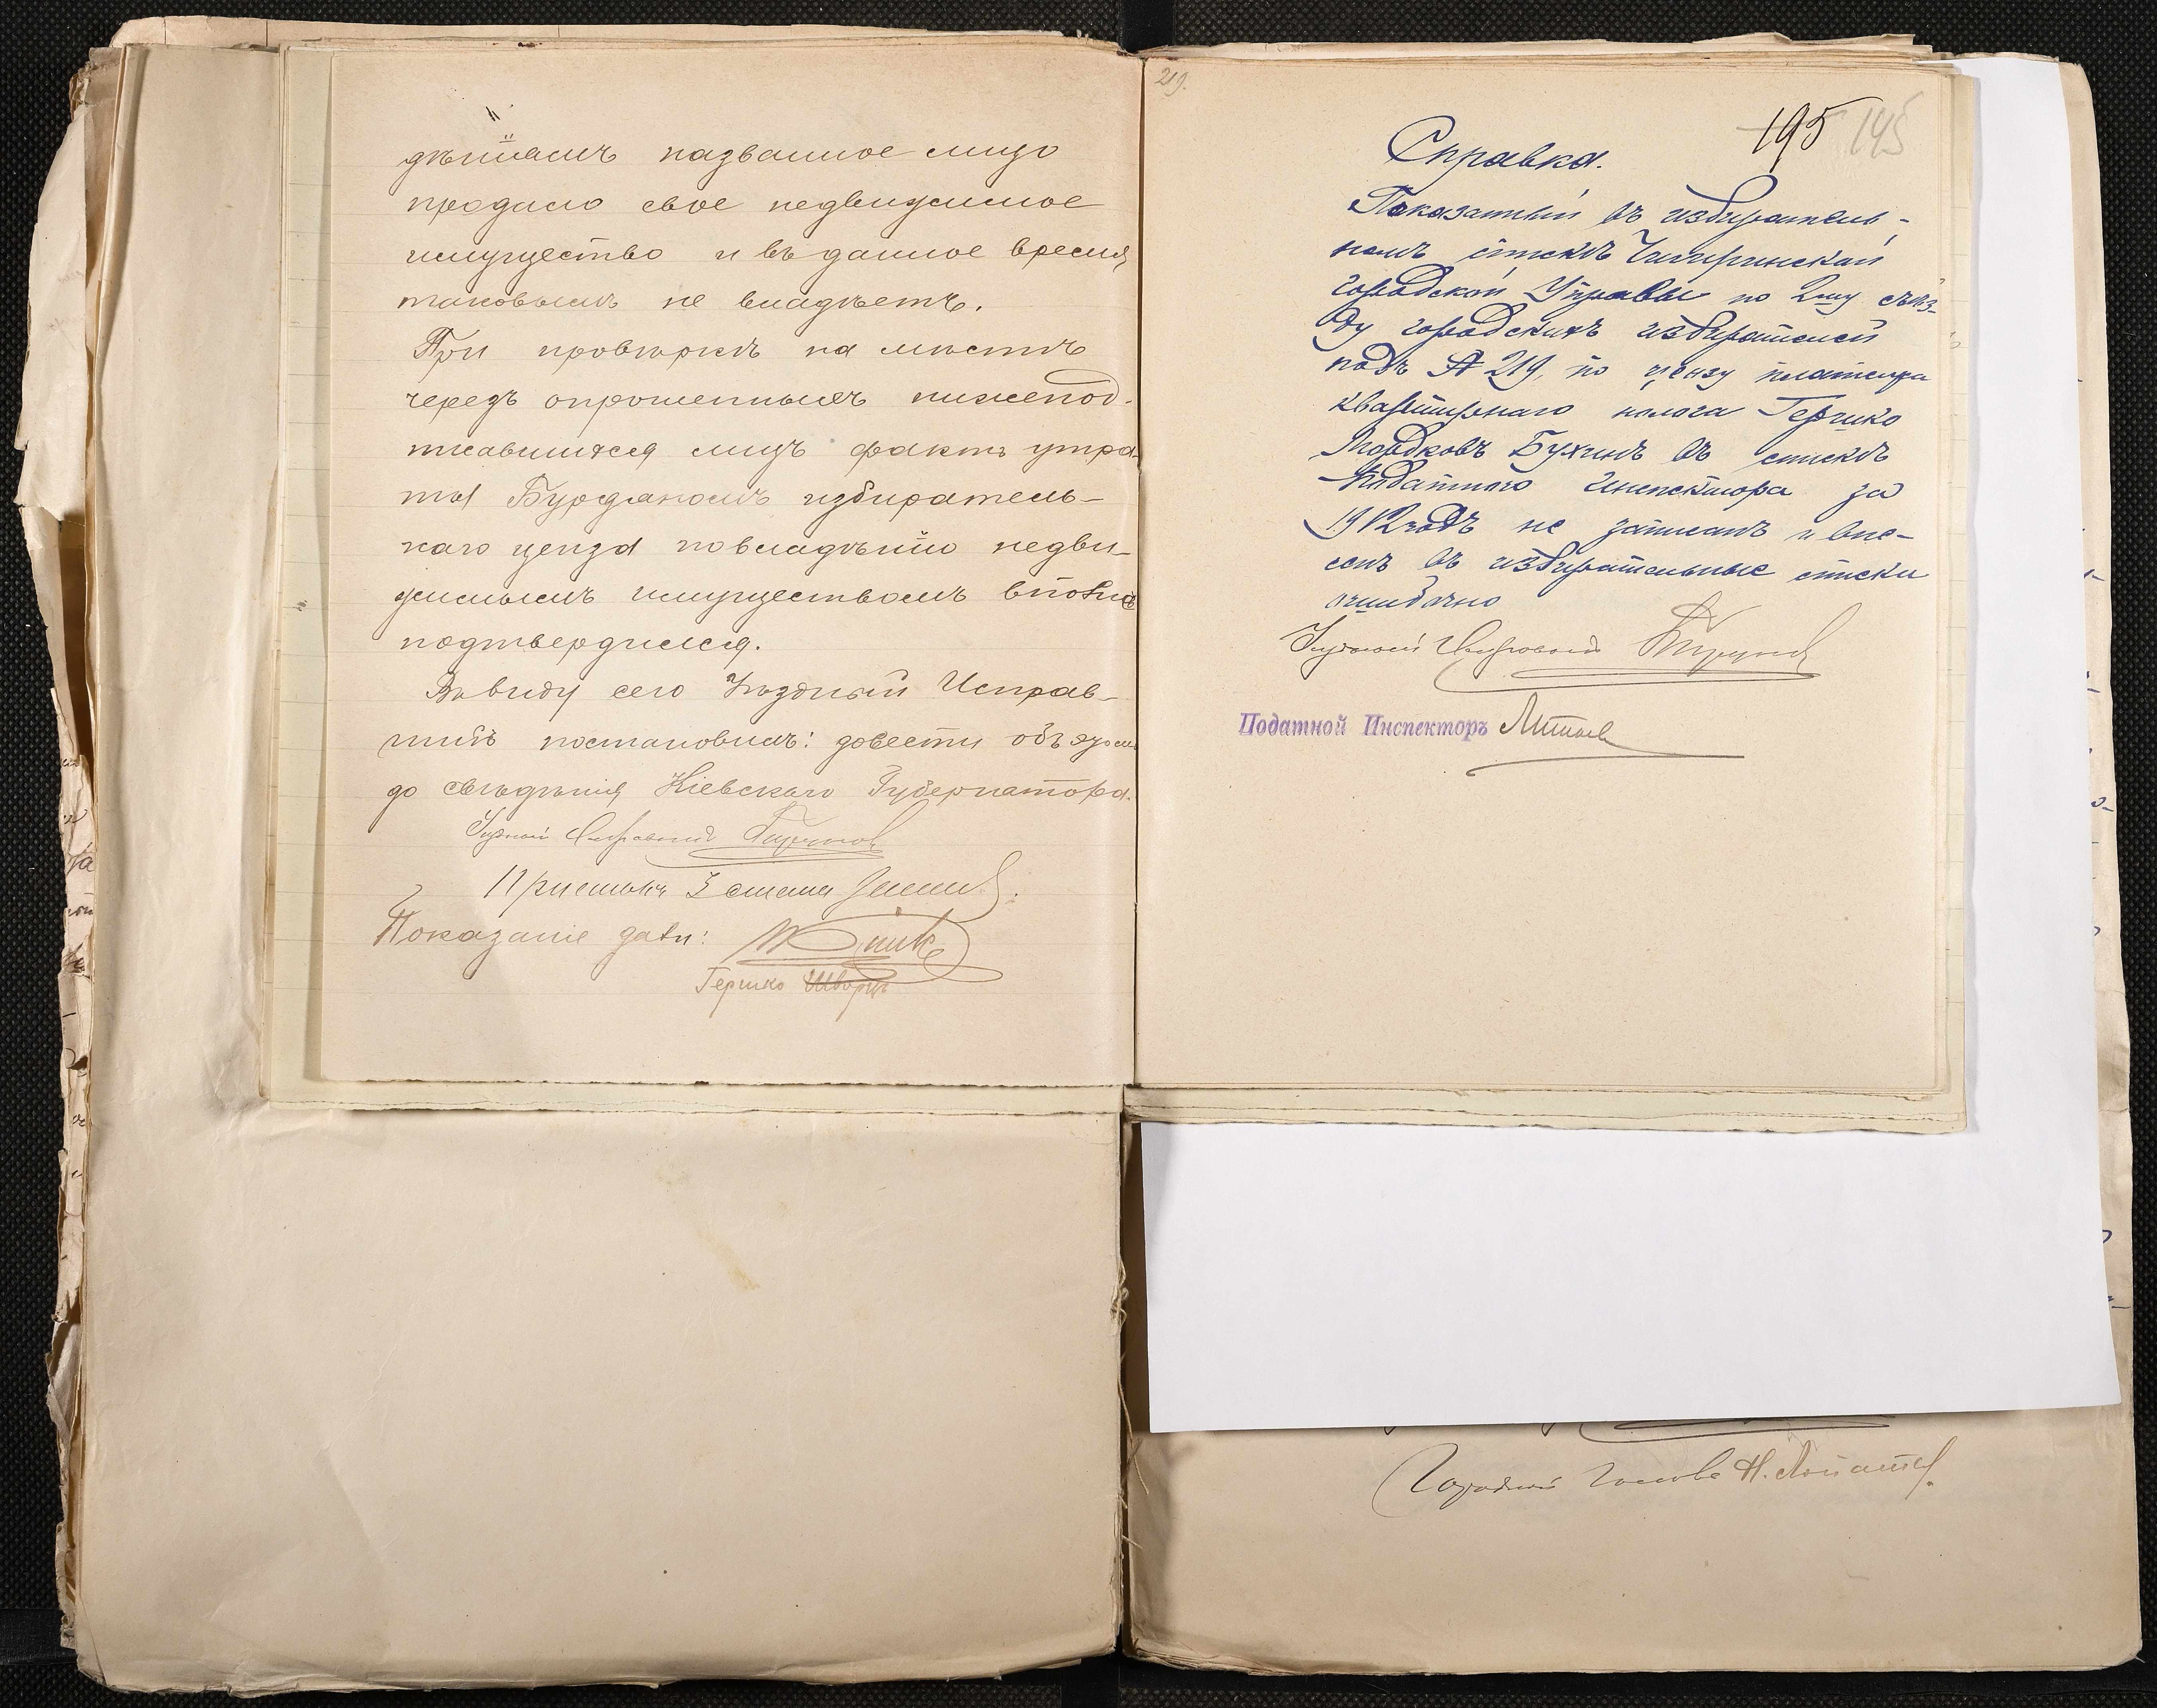 дѣніямъ названное лицо
продало свое недвижимое
имущество и въ данное время
таковымъ не владѣетъ.
При провѣркѣ на мѣстѣ
черезъ опрошенныхъ нижепод-
писавшихся лицъ фактъ утра-
ты Бурданомъ избиратель-
наго ценза по владѣнію недви-
жимымъ имуществомъ вполнѣ
подтвердился.
Въ виду сего Уѣздный Исправ-
никъ постановилъ: довести объ этомъ
до свѣдѣнія Кіевскаго Губернатора.
Уѣздный Исправникъ
Приставъ 3 стана
Показаніе дали:
Гершко Шварцъ
219.
195 145
Справка.
Показанный въ избиратель-
номъ спискѣ Чигиринской
Городской Управы по 2му съѣз-
ду городскихъ избирателей
подъ № 219, по цензу плательщика
квартирнаго налога Гершко
Мордковъ Бухинъ въ спискѣ
Податного Инспектора за
1912 годъ не записанъ и вне-
сенъ въ избирательные списки
ошибочно
Уѣздный Исправникъ
Податной Инспекторъ
Городской Голова Н.